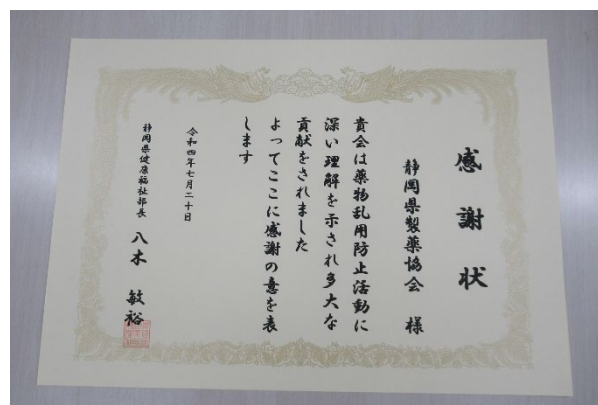 感謝状
静岡県製薬協会 様
貴会は薬物乱用防止活動に
深い理解を示され多大な
貢献をされました
よってここに感謝の意を表
します
令和四年七月二十日
静岡県健康福祉部長 八木 敏裕